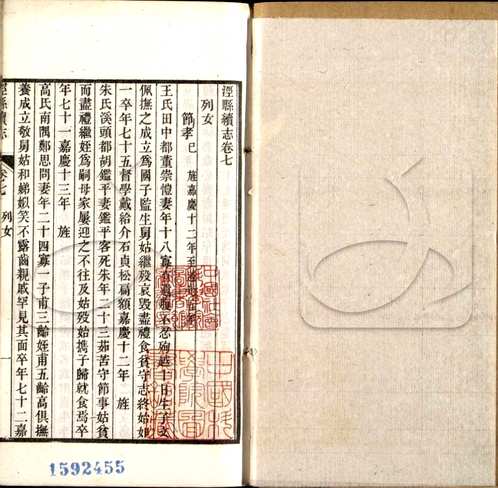 涇縣續志卷七
列女
節孝 已 旌嘉慶十二年至
王氏田中都董崇憶妻年十八寡有遺腹不忍殉越十日生子文
佩撫之成立為國子監生舅姑繼歿哀毀盡禮食貧守志終始如
一卒年七十五督學戴給介石貞松扁額嘉慶十二年 旌
朱氏溪頭都胡鑑平妻鑑平客死朱年二十三茹苦守節事姑貧
而盡禮繼姪為嗣母家屢迎之不往及姑歿始攜子歸就食焉卒
年七十一嘉慶十三年 旌
高氏南隅鄭思問妻年二十四寡一子甫三齡姪甫五齡高俱撫
養成立敬舅姑和娣姒笑不露齒親戚罕見其面卒年七十二嘉
涇縣續志
卷七 列女
一
1592455